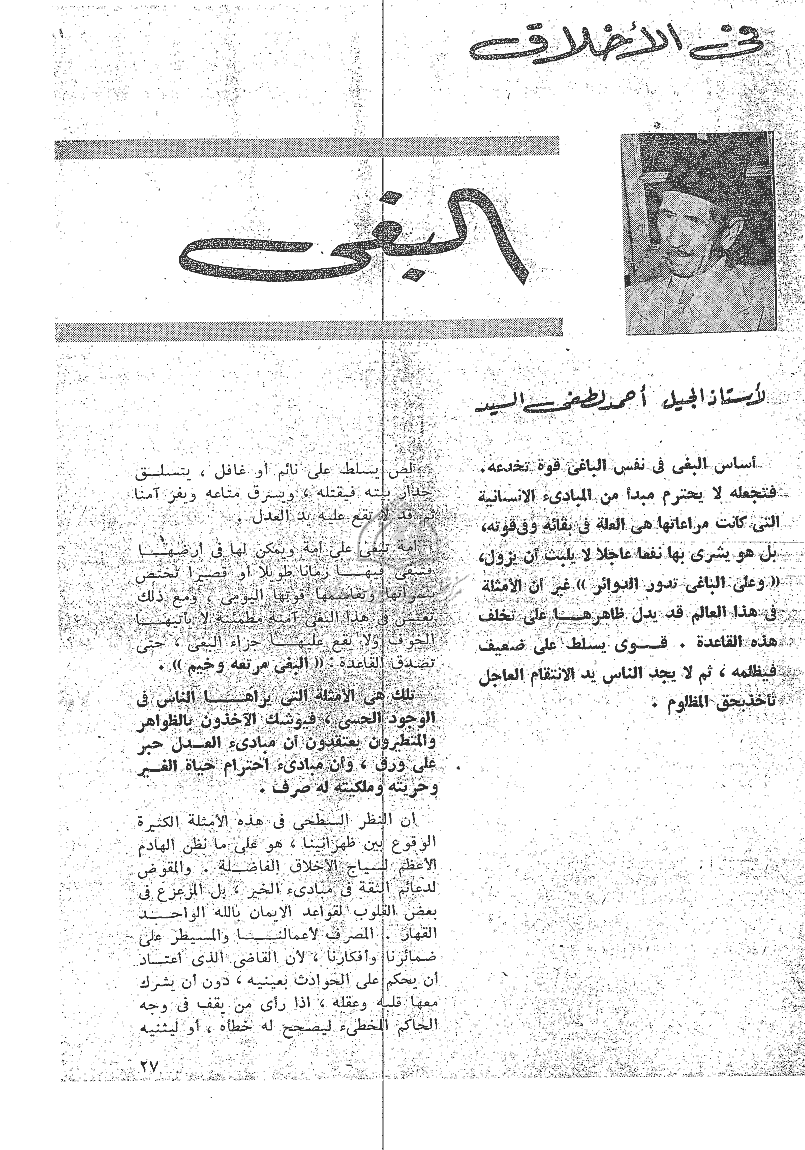 فى الأخلاق
البغى
لأستاذ الجيل أحمد لطفى السيد
أساس البغى فى نفس الباغى قوة تخدعه.
فتجعله لا يحترم مبدأ من المبادىء الانسانية
التى كانت مراعاتها هى العلة فى بقائه وفى قوته،
بل هو يشرى بها نفعا عاجلا لا يلبث أن يزول،
« وعلى الباغى تدور الدوائر » غير أن الأمثلة
فى هذا العالم قد يدل ظاهرهـا على تخلف
هذه القاعدة . قـوى يسلط على ضعيف
فيظلمه ، ثم لا يجد الناس يد الانتقام العاجل
تأخذ بحق المظلوم .
لص يسلط على نائم أو غافل ، يتسلـق
جدار بيته فيقتله ، ويسرق متاعه ويفر آمنا
ثم قد لا تقع عليه يد العدل .
أمة تبغى على أمة ويمكن لها فى أرضهـا
فتبقى فيهـا زمانا طويلا أو قصيرا تختص
بثمراتها وتقاسمها قوتها اليومى ، ومع ذلك
تعيش فى هذا البغى آمنة مطمئنة لا يأتيهـا
الخوف ولا يقع عليهـا جزاء البغى ، حتى
تصدق القاعدة : « البغى مرتعه وخيم » .
تلك هى الأمثلة التى يراهـا الناس فى
الوجود الحسى ، فيوشك الآخذون بالظواهر
والمتطيرون يعتقدون أن مبادىء العـدل حبر
على ورق ، وأن مبادىء احترام حياة الغـير
وحريته وملكيته له صرف .
أن النظر السطحى فى هذه الأمثلة الكثيرة
الوقوع بين ظهرانينا ، هو على ما نظن الهادم
الأعظم لسياج الأخلاق الفاضـلة . والمقوض
لدعائم الثقة فى مبادىء الخير ، بل المزعزع فى
بعض القلوب لقواعد الايمان بالله الواحـد
القهار . المصرف لأعمالنـا والمسيطر على
ضمائرنا وأفكارنا ، لأن القاضى الذى اعتـاد
أن يحكم على الحوادث بعينيه ، دون أن يشرك
معها قلبه وعقله ، اذا رأى من يقف فى وجه
الحاكم المخطىء ليصحح له خطأه ، أو ليثنيه
٢٧